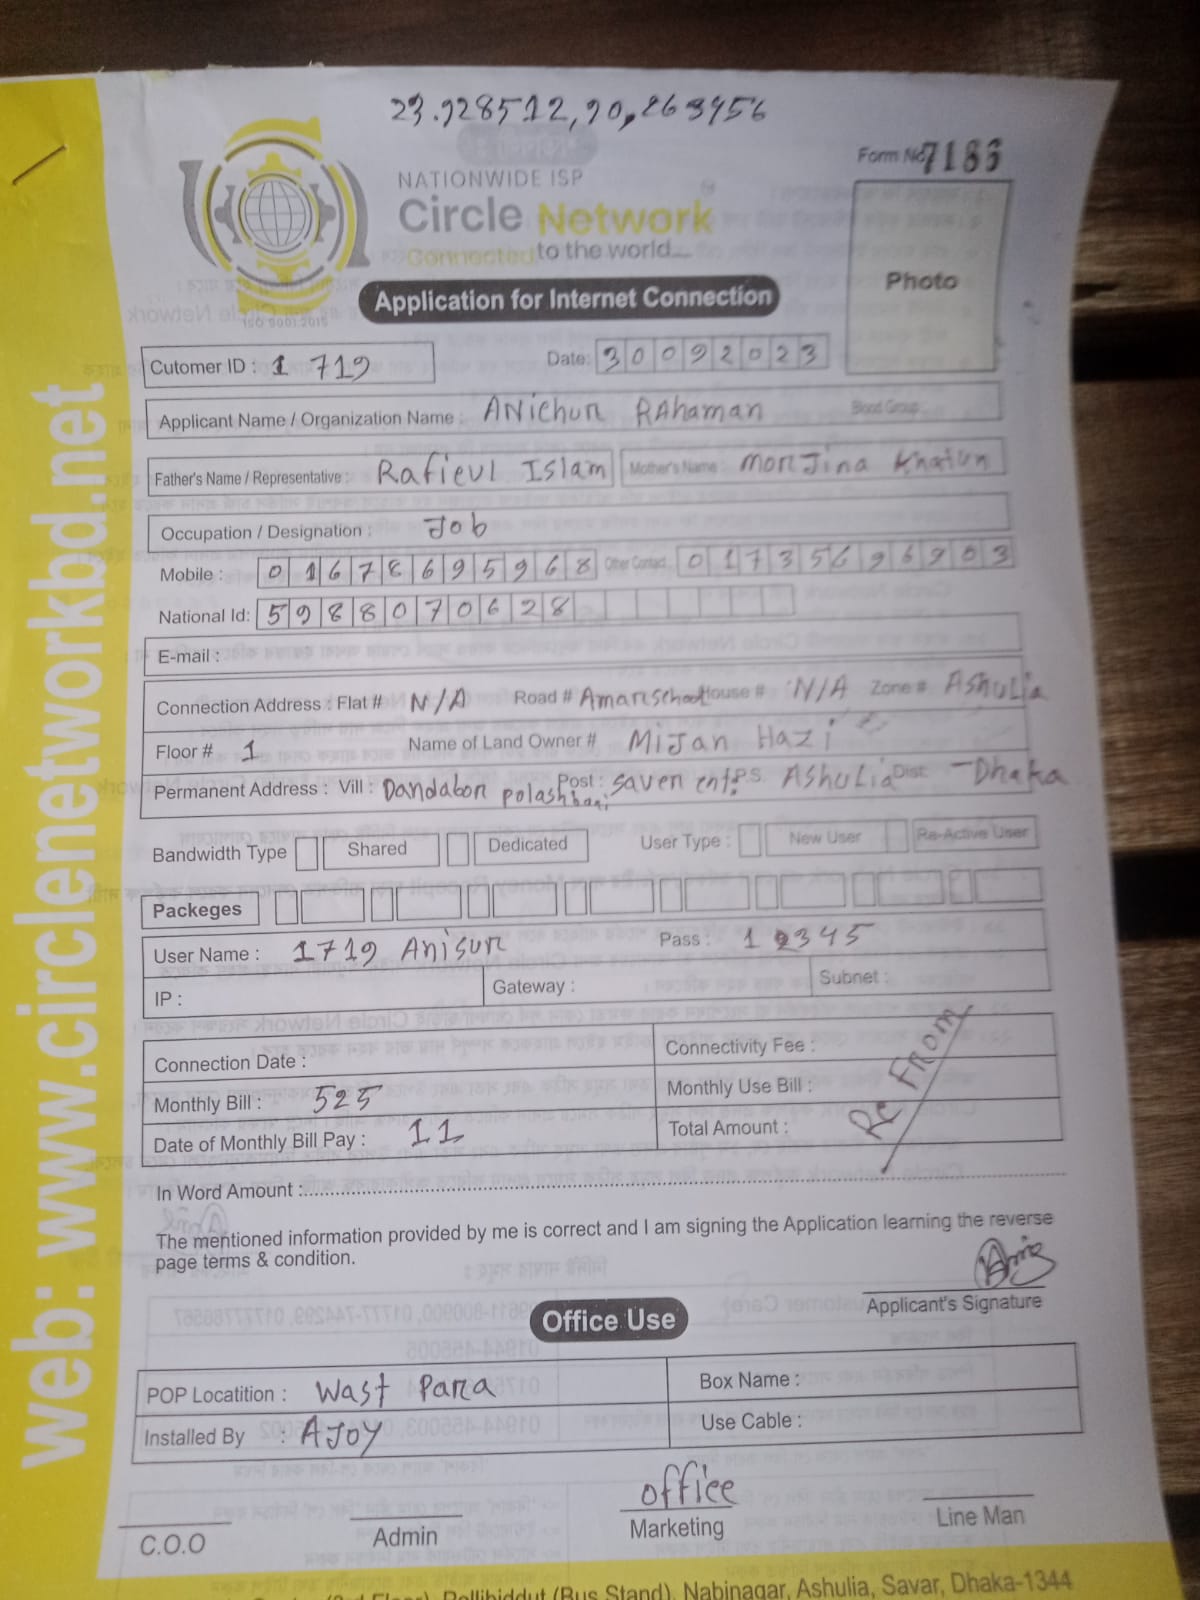 23.928512,90,263956
Form No 7186
NATIONWIDE ISP
Circle Network
Connected to the world...
ISO 9001:2015
Photo
Application for Internet Connection
Cutomer ID : 1 719 Date: 30092023
Applicant Name / Organization Name : ANichur RAhaman Blood Group
Father's Name / Representative : Rafieul Islam Mother's Name : MonJina Khatun
Occupation / Designation : Job
Mobile : 01678695968 Other Contact 01735696903
National Id: 5988070628
E-mail :
Connection Address : Flat # N/A Road # Amarischool House # N/A Zone # AShuLia
Floor # 1 Name of Land Owner # MiJan Hazi
Permanent Address : Vill : Dandabor polashbari Post : Saver ent: P.S. AShuLia Dist: Dhaka
Bandwidth Type Shared Dedicated User Type : New User Re-Active User
Packeges
User Name : 1719 Anisur Pass : 12345
IP : Gateway : Subnet :
Connection Date : Connectivity Fee :
Monthly Bill : 525 Monthly Use Bill :
Date of Monthly Bill Pay : 11 Total Amount :
Re From
In Word Amount :
The mentioned information provided by me is correct and I am signing the Application learning the reverse
page terms & condition.
Applicant's Signature
Office Use
POP Locatition : Wast Para Box Name :
Installed By : AJOY Use Cable :
office
C.O.O Admin Marketing Line Man
Pollibiddut (Bus Stand), Nabinagar, Ashulia, Savar, Dhaka-1344
web: www.circlenetworkbd.net